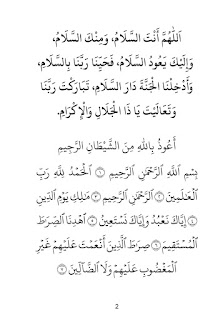 اَللّٰهُمَّ أَنْتَ السَّلَامُ، وَمِنْكَ السَّلَامُ،
وَإِلَيْكَ يَعُودُ السَّلَامُ، فَحَيِّنَا رَبَّنَا بِالسَّلَامِ،
وَأَدْخِلْنَا الْجَنَّةَ دَارَ السَّلَامِ، تَبَارَكْتَ رَبَّنَا
وَتَعَالَيْتَ يَا ذَا الْجَلَالِ وَالْإِكْرَامِ.
أَعُوذُ بِاللهِ مِنَ الشَّيْطَانِ الرَّجِيمِ
بِسْمِ ٱللَّهِ ٱلرَّحْمَٰنِ ٱلرَّحِيمِ ١ ٱلْحَمْدُ لِلَّهِ رَبِّ
ٱلْعَٰلَمِينَ ٢ ٱلرَّحْمَٰنِ ٱلرَّحِيمِ ٣ مَٰلِكِ يَوْمِ ٱلدِّينِ
٤ إِيَّاكَ نَعْبُدُ وَإِيَّاكَ نَسْتَعِينُ ٥ ٱهْدِنَا ٱلصِّرَٰطَ
ٱلْمُسْتَقِيمَ ٦ صِرَٰطَ ٱلَّذِينَ أَنْعَمْتَ عَلَيْهِمْ غَيْرِ
ٱلْمَغْضُوبِ عَلَيْهِمْ وَلَا ٱلضَّآلِّينَ ٧
2